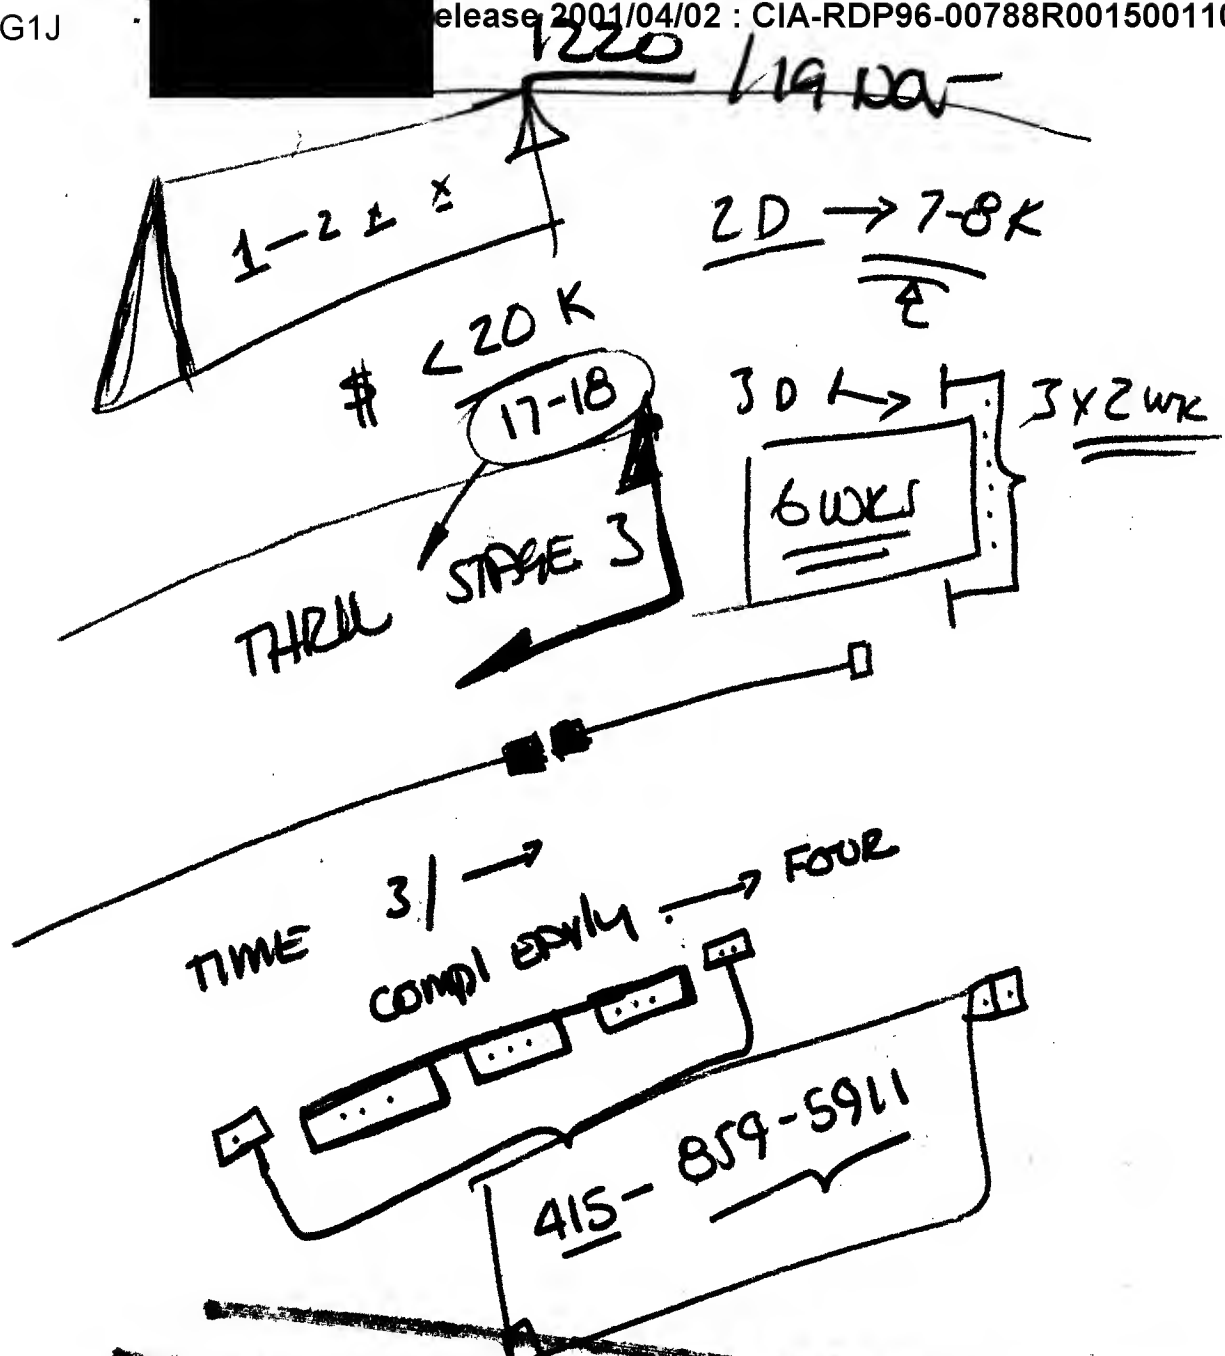 G1J
elease 2001/04/02 : CIA-RDP96-00788R00150011
1220 / 19 NOV -
1-2 1 x
2D → 7-8K
$ < 20 K
17-18
3D → 3 x 2 WK
6 WKS
THRU STAGE 3
TIME 3/ →
compl EARly → FOUR
415-859-5911